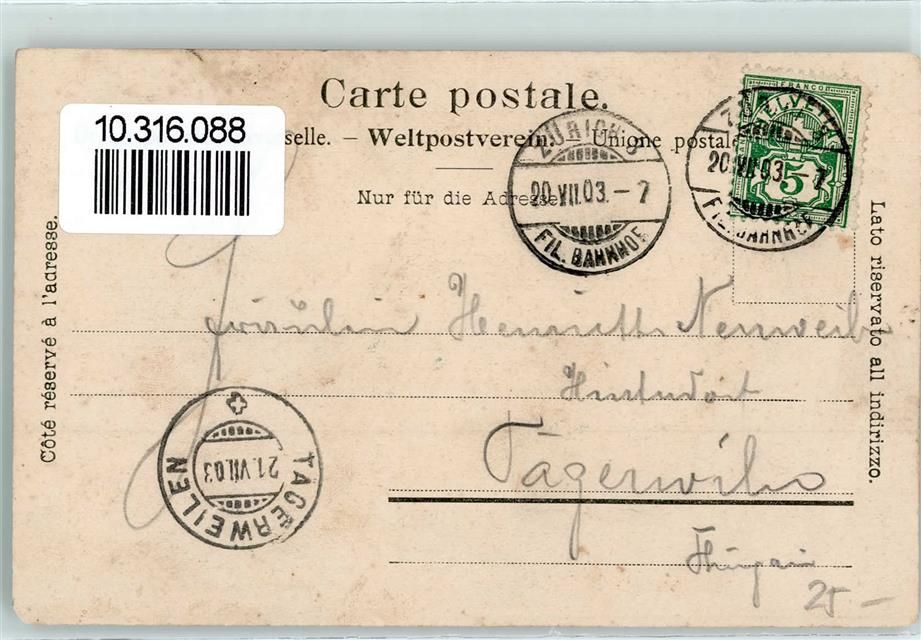 Carte postale.
10.316.088
selle. – Weltpostverein. – Unione postale
Nur für die Adresse
Côté réservé à l'adresse.
Lato riservato all indirizzo.
ZÜRICH 9
20.VII.03.–7
FIL. BAHNHOF
FRANCO
HELVETIA
5
20.VII.03.–7
FIL. BAHNHOF
Fräulein Henriette
Hinterdorf
Tägerwilen
21.VII.03
TÄGERWEILEN
25 –